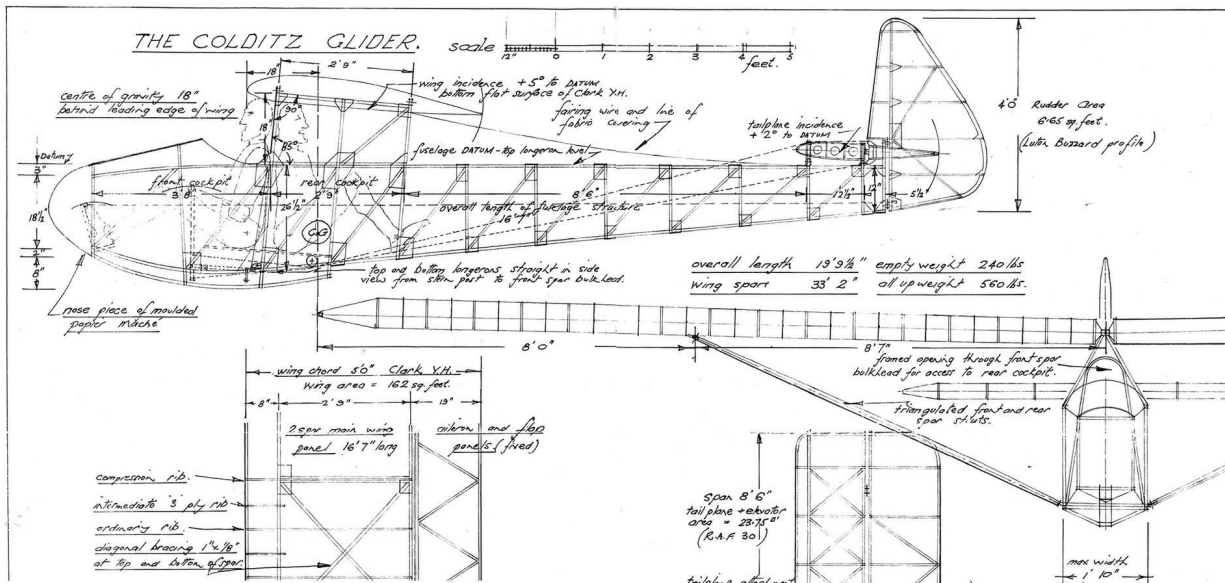 THE COLDITZ GLIDER.
scale
12" 0 1 2 3 4 5
feet.
18"
2' 9"
centre of gravity 18"
behind leading edge of wing
wing incidence +5° to DATUM
bottom flat surface of Clark Y.H.
fairing wire and line of
fabric covering
tailplane incidence
+2° to DATUM
4'0"
Rudder Area
6·65 sq. feet.
(Luton Buzzard profile)
90°
18"
85°
Datum
3"
18½
2"
8"
fuselage DATUM - top longeron level
front cockpit
3' 8"
rear cockpit
2' 9
26½"
8' 6"
overall length of fuselage structure
16'
12½"
12"
5½"
C of G
top and bottom longerons straight in side
view from stern post to front spar bulkhead.
nose piece of moulded
papier mache
overall length 19' 9½" empty weight 240 lbs
wing span 33' 2" all up weight 560 lbs.
8' 0"
8' 7"
framed opening through front spar
bulkhead for access to rear cockpit.
triangulated front and rear
spar struts.
wing chord 5'0" Clark Y.H.
wing area = 162 sq. feet.
8"
2' 9"
19"
2 spar main wing
panel 16' 7" long
aileron and flap
panels (fixed)
compression rib.
intermediate 3 ply rib
ordinary rib.
diagonal bracing 1" x 1/8"
at top and bottom of spar.
span 8' 6"
tail plane + elevator
area = 23.75 □'
(R.A.F 30)
max width
1' 10"